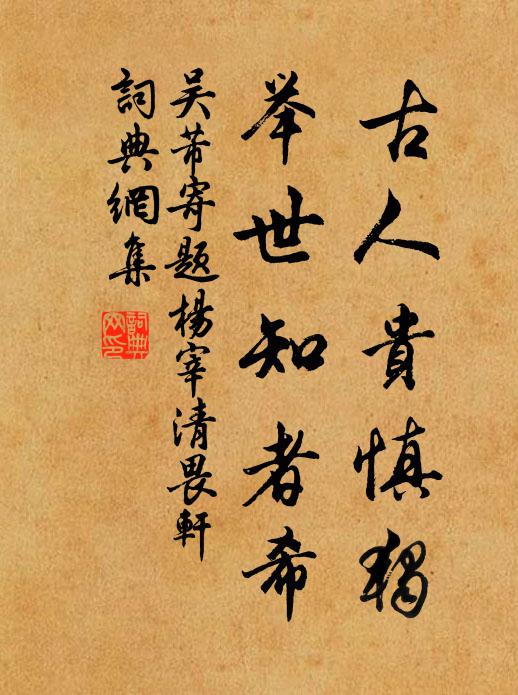 古人貴慎独
举世知者希
吴芾寄题楊宰清畏軒
詞典網集
詞典网印